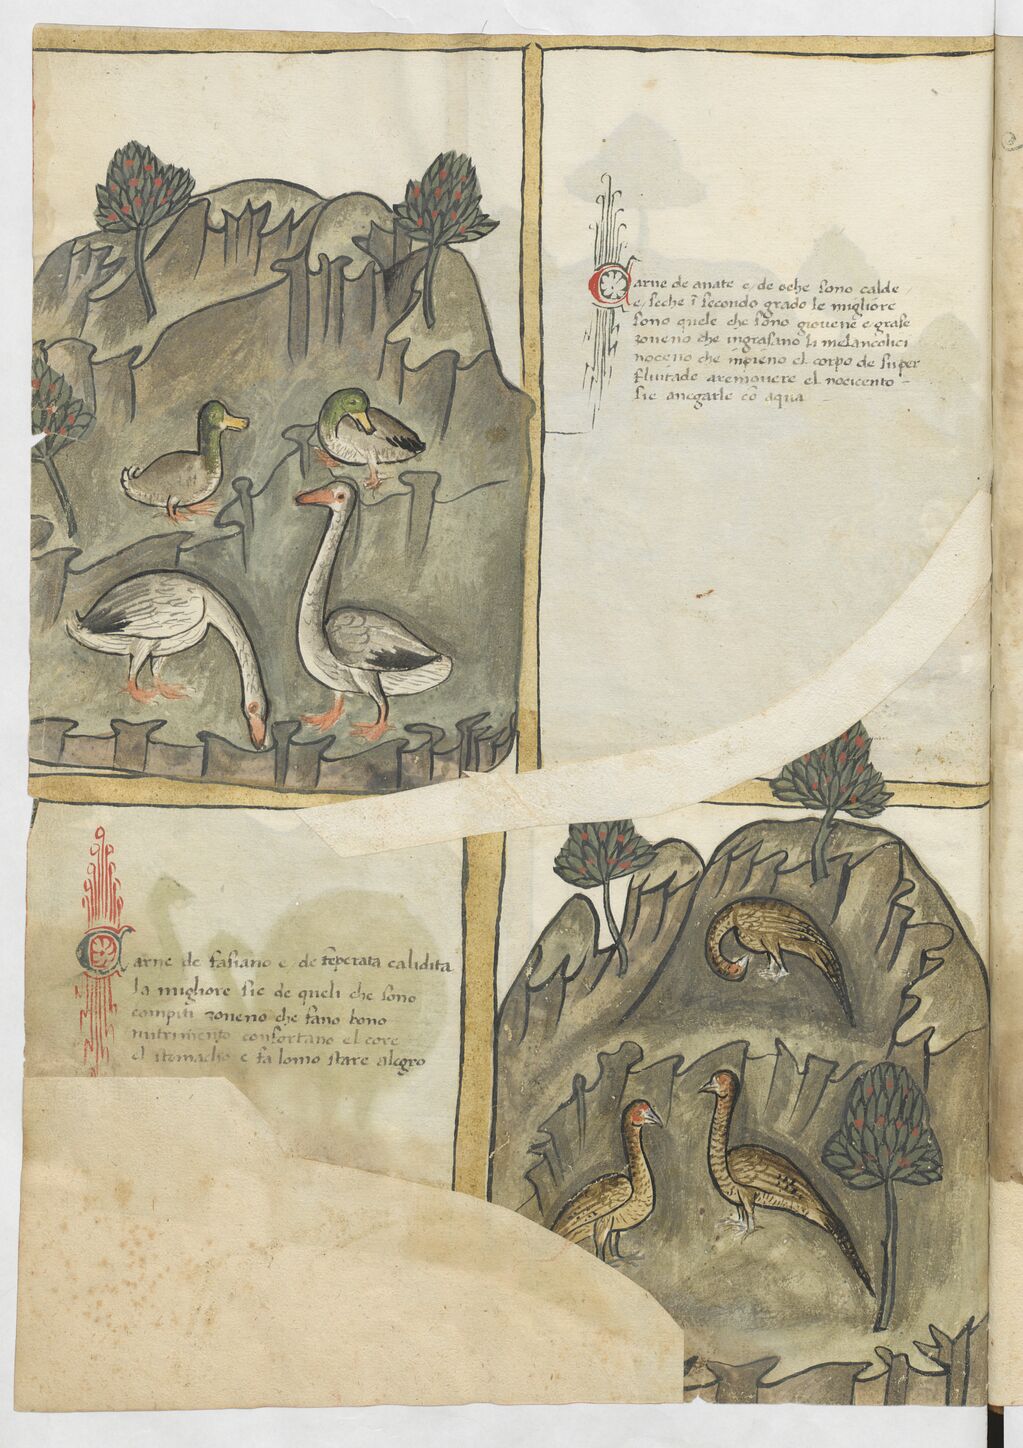 Carne de anate e de oche sono calde
e seche ĩ secondo grado le migliore
sono quele che sõno giovene e grase
zoveno che ingrasano li melancolici
noceno che inpieno el corpo de super
fluitade aremovere el nocicento -
sie anegarle cõ aqua
Carne de fasiano e de tẽperata calidita
la migliore sie de queli che sono
compiti zoveno che fano bono
nutrimento confortano el core
el stomacho e fa lomo stare alegro